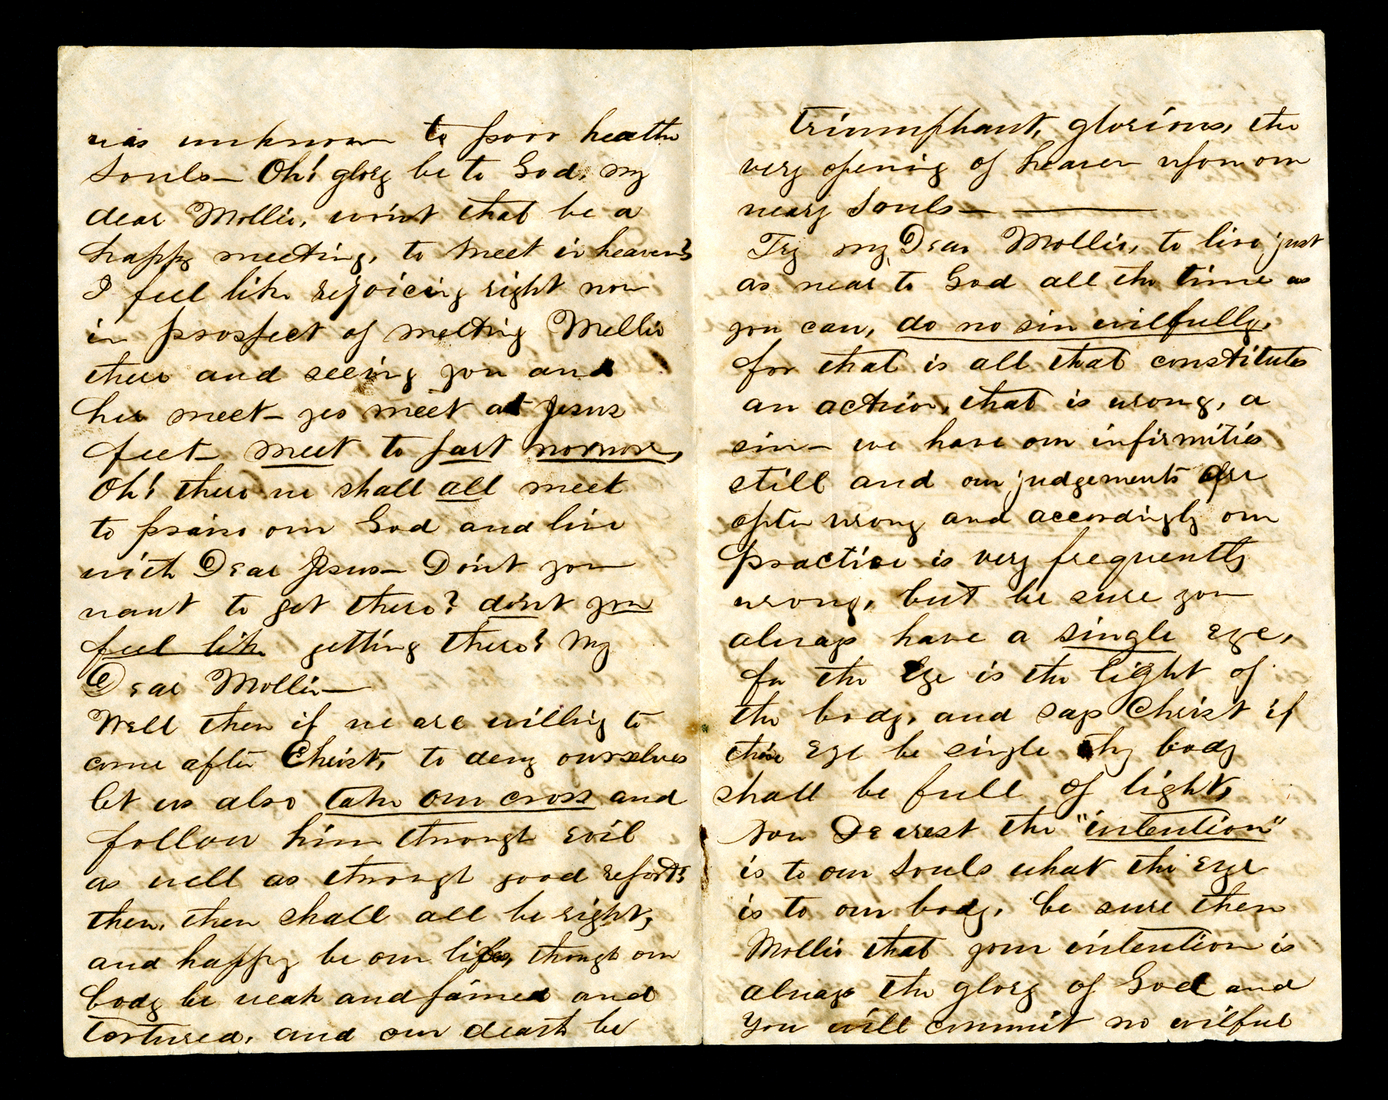 was unknown to poor heathe
Souls— Oh! glory be to God, my
dear Mollie, won't that be a
happy meeting, to meet in heaven?
I feel like rejoicing right now
in prospect of meeting Mellie
there and seeing you and
her meet— yes meet at Jesus
feet— meet to part nomore,
Oh! there we shall all meet
to praise our God and live
with Dear Jesus— Don't you
want to get there? don't you
feel like getting there? My
Dear Mollie—
Well then if we are willing to
come after Christ, to deny ourselves
let us also take our cross and
follow him through evil
as well as through good reports
then, then shall all be right,
and happy be our lifes, though our
body be weak and pained and
tortured, and our death be
triumphant, glorious, the
very opening of heaven upon our
weary Souls—
Try my Dear Mollie, to live just
as near to God all the time as
you can, do no sin wilfully,
for that is all that constitutes
an action, that is wrong, a
sin— we have our infirmities
still and our judgements are
often wrong and accordingly our
practice is very frequently
wrong, but be sure you
always have a single eye,
for the Eye is the light of
the body, and says Christ if
thine eye be single thy body
shall be full of light,
Now Dearest the "intention"
is to our Souls what the eye
is to our body, be sure then
Mollie that your intention is
always the glory of God and
You will commit no wilful